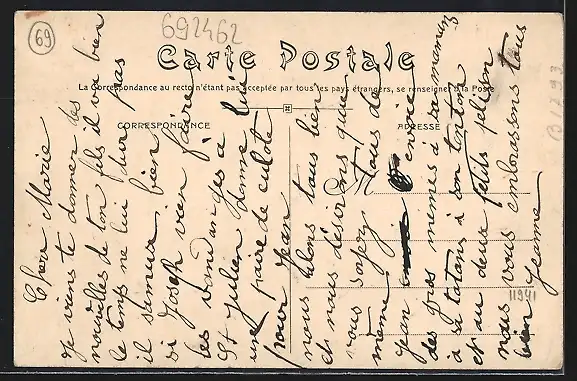 69
692462
Carte Postale
La correspondance au recto n'étant pas acceptée par tous les pays étrangers, se renseigner à la Poste
CORRESPONDANCE
ADRESSE
M
Chère Marie
Je viens te donner les
nouvelles de ton fils il va bien
le temps ne lui dure pas
il s'amuse bien
si Joseph vien faire
les vendanges a
St Julien donne lui
une paire de culote
pour Jean
nous alons tous bien
et nous désirons que
vous soyez tous de
même
Jean envoie
des gros mimes à sa maman
a sa tatan à son tonton
et au deux petits félicien
nous vous embrassons tous
bien Jeanne
11941